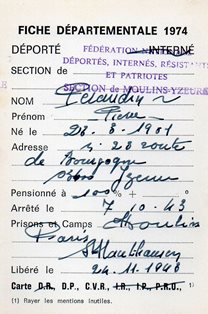 FICHE DÉPARTEMENTALE 1974
DÉPORTÉ INTERNÉ
FÉDÉRATION
DÉPORTÉS, INTERNÉS, RÉSISTANTS
ET PATRIOTES
SECTION de Section de MOULINS-YZEURE
NOM
Prénom Pierre
Né le 28. 3 - 1901
Adresse 28 route
de Bourgogne
Yzeure
Pensionné à 100% +
Arrêté le 7. 10. 43
Prisons et Camps Moulins
Paris
Mauthausen
Libéré le
Carte D.R., D.P., C.V.R., I.R., I.P., P.R.O., 1)
(1) Rayer les mentions inutiles.